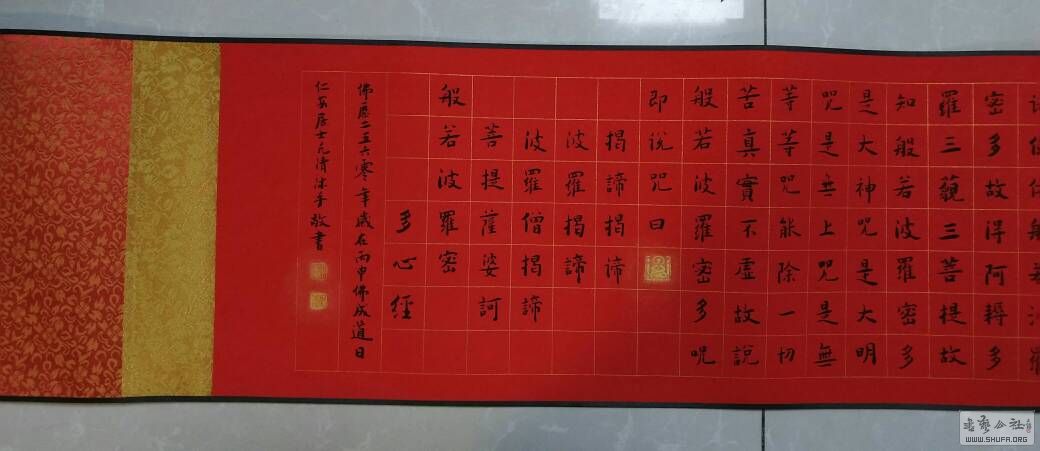 密多故得阿耨多
羅三藐三菩提故
知般若波羅密多
是大神咒是大明
咒是無上咒是無
等等咒能除一切
苦真實不虛故說
般若波羅密多呪
即說咒曰
揭諦揭諦
波羅揭諦
波羅僧揭諦
菩提薩婆訶
般若波羅密
多心經
佛歷二五六零年歲在丙申佛成道日
仁安居士元清沐手敬書
書藝公社
WWW.SHUFA.ORG